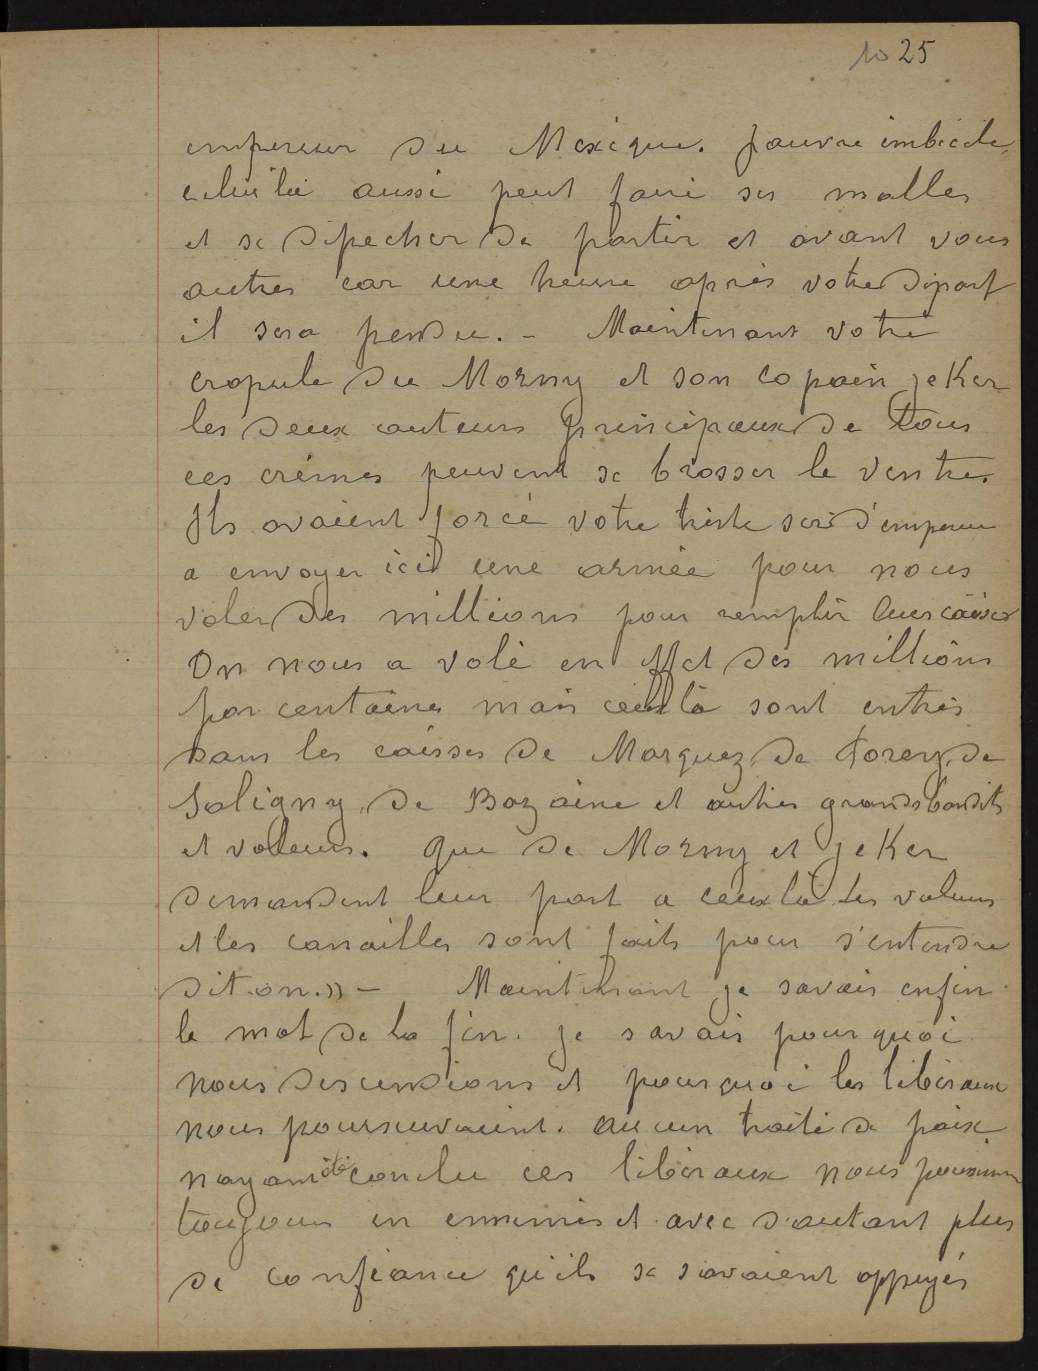 10 25
empereur du Mexique. pauvre imbécile,
celui là aussi peut faire ses malles
et se dépecher de partir et avant vous
autres car une heure après votre départ
il sera perdu. - Maintenant votre
crapule de Morny et son copain jeKer
les deux auteurs principaux de tous
ces crimes peuvent se brosser le ventre.
Ils avaient forcé votre triste sire d'empereur
a envoyer ici une armée pour nous
voler des millions pour remplir leurs caisses
On nous a volé en effet des millions
par centaines mais ceux là sont entrés
dans les caisses de Marquez, de Forey, de
Saligny, de Bazaine et autres grands bandits
et voleurs. que de Morny et jeKer
demandent leur part a ceux là. Les voleurs
et les canailles sont faits pour s'entendre
dit-on.» - Maintenant je savais enfin
le mot de la fin. je savais pourquoi
nous descendions et pourquoi les libéraux
nous poursuivaient. aucun traité de paix
nayant été conclu ces libéraux nous poursuivaient
toujours en ennemis et avec d'autant plus
de confiance qu'ils se savaient appuyés